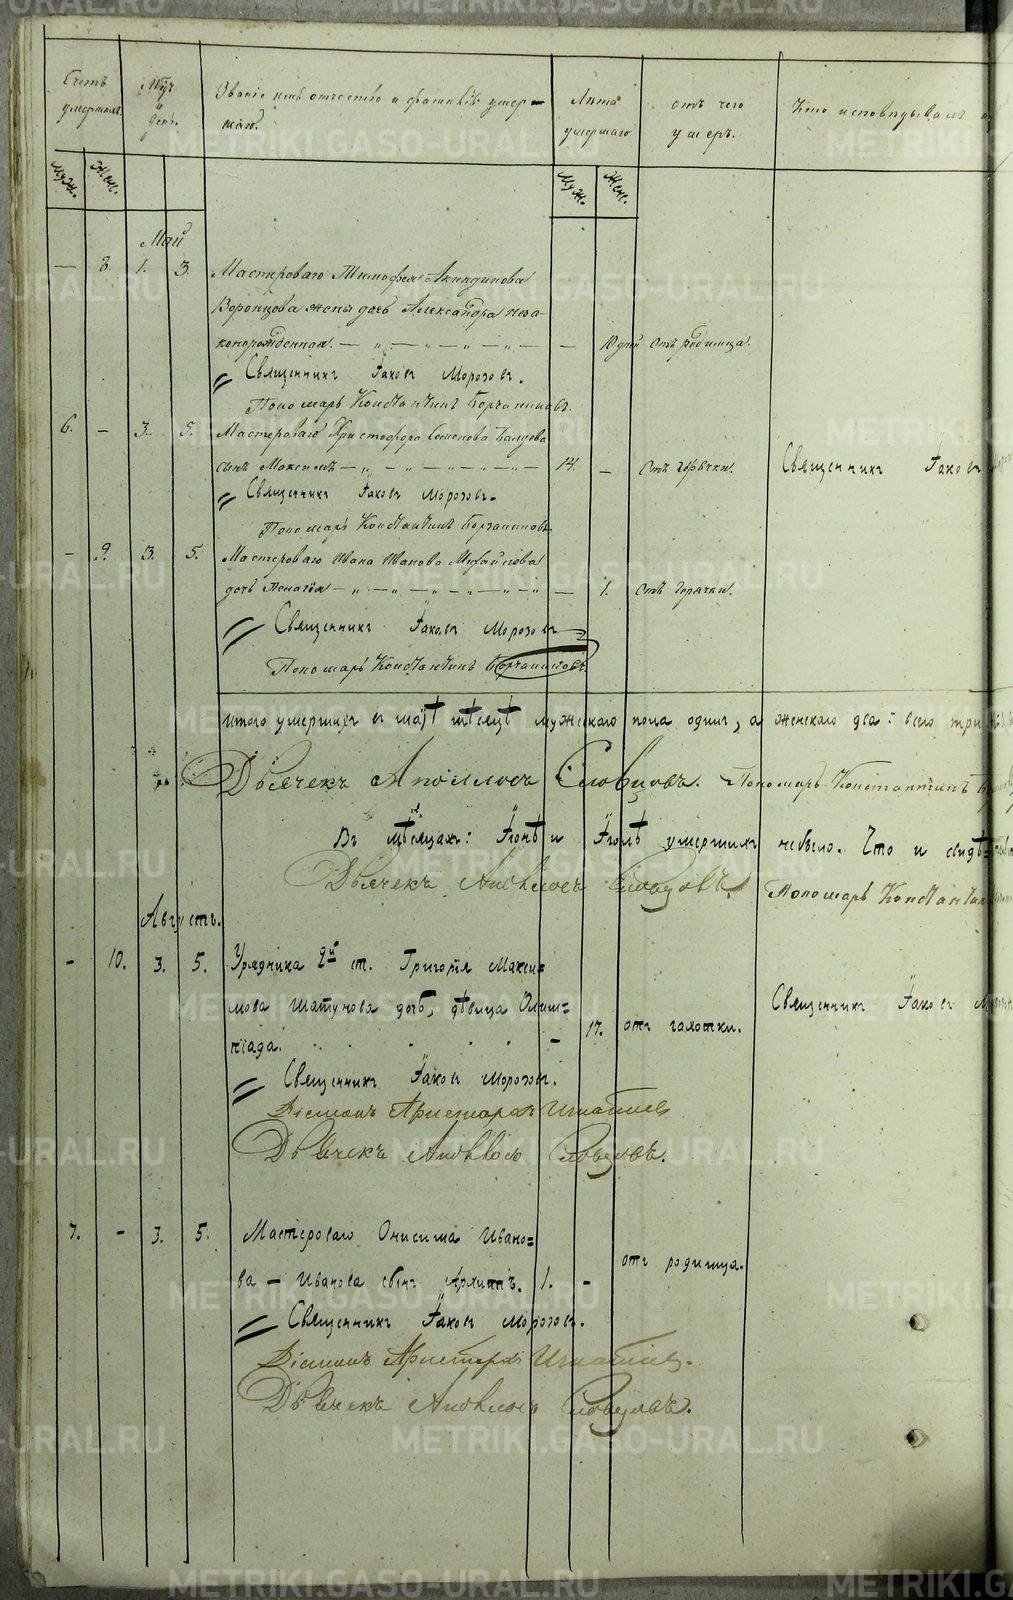 METRIKI.GASO-URAL.RU
Счетъ умершихъ.
Мѣс. и день.
Званіе имя отчество и фамилія умер-
шихъ.
Лѣта умершаго
отъ чего умеръ.
Кто исповѣдывалъ
Муж. Жен. Муж. Жен.
Май
— 8. 1. 3. Мастероваго Тимофея Акиндинова
Воронцова жены дочь Александра неза-
коннорожденная. — 10 дней отъ родимца.
Священникъ Іаковъ Морозовъ.
Пономарь Константинъ
6. — 3. 5. Мастероваго Христофора Семенова
сынъ Максимъ — 14. — отъ горячки. Священникъ Іаковъ
Священникъ Іаковъ Морозовъ.
Пономарь Константинъ
— 9. 3. 5. Мастероваго Ивана Иванова Михайлова
дочь Пелагея — 1. отъ горячки.
Священникъ Іаковъ Морозовъ
Пономарь Константинъ
итого умершихъ въ маѣ мѣсяцѣ мужескаго пола одинъ, а женскаго два: всего три
Дьячекъ Аполлосъ Словцовъ. Пономарь Константинъ
Въ мѣсяцахъ: Іюнѣ и Іюлѣ умершихъ небыло. Что и свидѣ
Дьячекъ Аполлосъ Словцовъ. Пономарь Константинъ
Августъ.
- 10. 3. 5. Урядника 2й ст. Григорія Макси=
мова Шатунова дочь, дѣвица Олим=
піада. - 17. отъ чахотки. Священникъ Іаковъ
Священникъ Іаковъ Морозовъ.
Діаконъ Аристархъ Игнатіев
Дьячекъ Аполлосъ Словцовъ.
7. - 3. 5. Мастероваго Онисима Ивано=
ва - Иванова сынъ 1. - отъ родимца.
Священникъ Іаковъ Морозовъ.
Діаконъ Аристархъ Игнатіев.
Дьячекъ Аполлосъ Словцовъ.